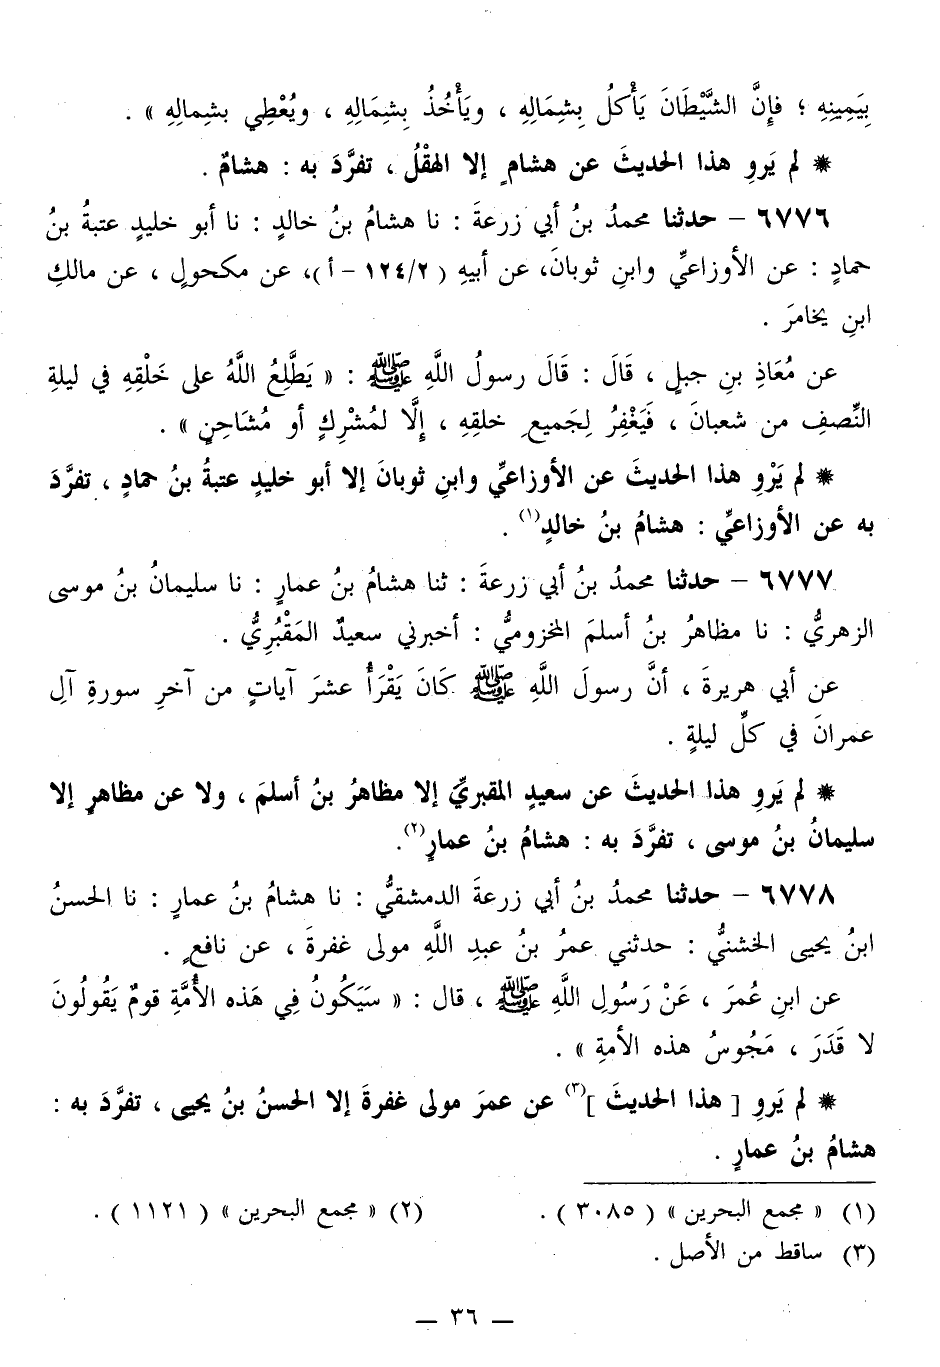 بِيَمِينِهِ ؛ فإِنَّ الشَّيْطَانَ يَأْكلُ بِشِمَالِهِ ، ويَأْخُذُ بِشِمَالِهِ ، ويُعْطِي بشِمالِهِ » .
* لم يَروِ هذا الحديثَ عن هشامٍ إلا الهِقْلُ ، تفرَّدَ به : هشامٌ .
٦٧٧٦ – حدثنا محمدُ بنُ أبي زرعةَ : نا هشامُ بنُ خالدٍ : نا أبو خليدٍ عتبةُ بنُ
حمادٍ : عن الأوزاعيِّ وابنِ ثوبانَ، عن أبيهِ (١٢٤/٢ – أ)، عن مكحولٍ ، عن مالكِ
ابنِ يخامرَ .
عن مُعَاذِ بنِ جبلٍ ، قَالَ : قَالَ رسولُ اللَّهِ ﷺ : « يَطَّلِعُ اللَّهُ على خَلْقِهِ في ليلةِ
النِّصفِ من شعبانَ ، فَيَغْفِرُ لِجَميعِ خلقِهِ ، إِلَّا لمُشْرِكٍ أو مُشَاحِنٍ » .
* لم يَرْوِ هذا الحديثَ عن الأوزاعيِّ وابنِ ثوبانَ إلا أبو خليدٍ عتبةُ بنُ حمادٍ ، تفرَّدَ
به عن الأوزاعيِّ : هشامُ بنُ خالدٍ(١) .
٦٧٧٧ – حدثنا محمدُ بنُ أبي زرعةَ : ثنا هشامُ بنُ عمارٍ : نا سليمانُ بنُ موسى
الزهريُّ : نا مظاهرُ بنُ أسلمَ المخزوميُّ : أخبرني سعيدٌ المَقْبُرِيُّ .
عن أبي هريرةَ ، أنَّ رسولَ اللَّهِ ﷺ كَانَ يَقْرَأُ عشرَ آياتٍ من آخرِ سورةِ آلِ
عمرانَ في كلِّ ليلةٍ .
* لم يَروِ هذا الحديثَ عن سعيدٍ المقبريِّ إلا مظاهرُ بنُ أسلمَ ، ولا عن مظاهرٍ إلا
سليمانُ بنُ موسى ، تفرَّدَ به : هشامُ بنُ عمارٍ(٢).
٦٧٧٨ – حدثنا محمدُ بنُ أبي زرعةَ الدمشقيُّ : نا هشامُ بنُ عمارٍ : نا الحسنُ
ابنُ يحيى الخشنيُّ : حدثني عمرُ بنُ عبدِ اللَّهِ مولى غفرةَ ، عن نافعٍ .
عن ابنِ عُمرَ ، عَنْ رَسُولِ اللَّهِ ﷺ ، قال : « سَيَكُونُ فِي هَذه الأُمَّةِ قومٌ يَقُولُونَ
لا قَدَرَ ، مَجُوسُ هذه الأمةِ » .
* لم يَروِ [ هذا الحديثَ ](٣) عن عمرَ مولى غفرةَ إلا الحسنُ بنُ يحيى ، تفرَّدَ به :
هشامُ بنُ عمارٍ .
(١) « مجمع البحرين » ( ٣٠٨٥ ) . (٢) « مجمع البحرين » ( ١١٢١ ) .
(٣) ساقط من الأصل .
— ٣٦ —